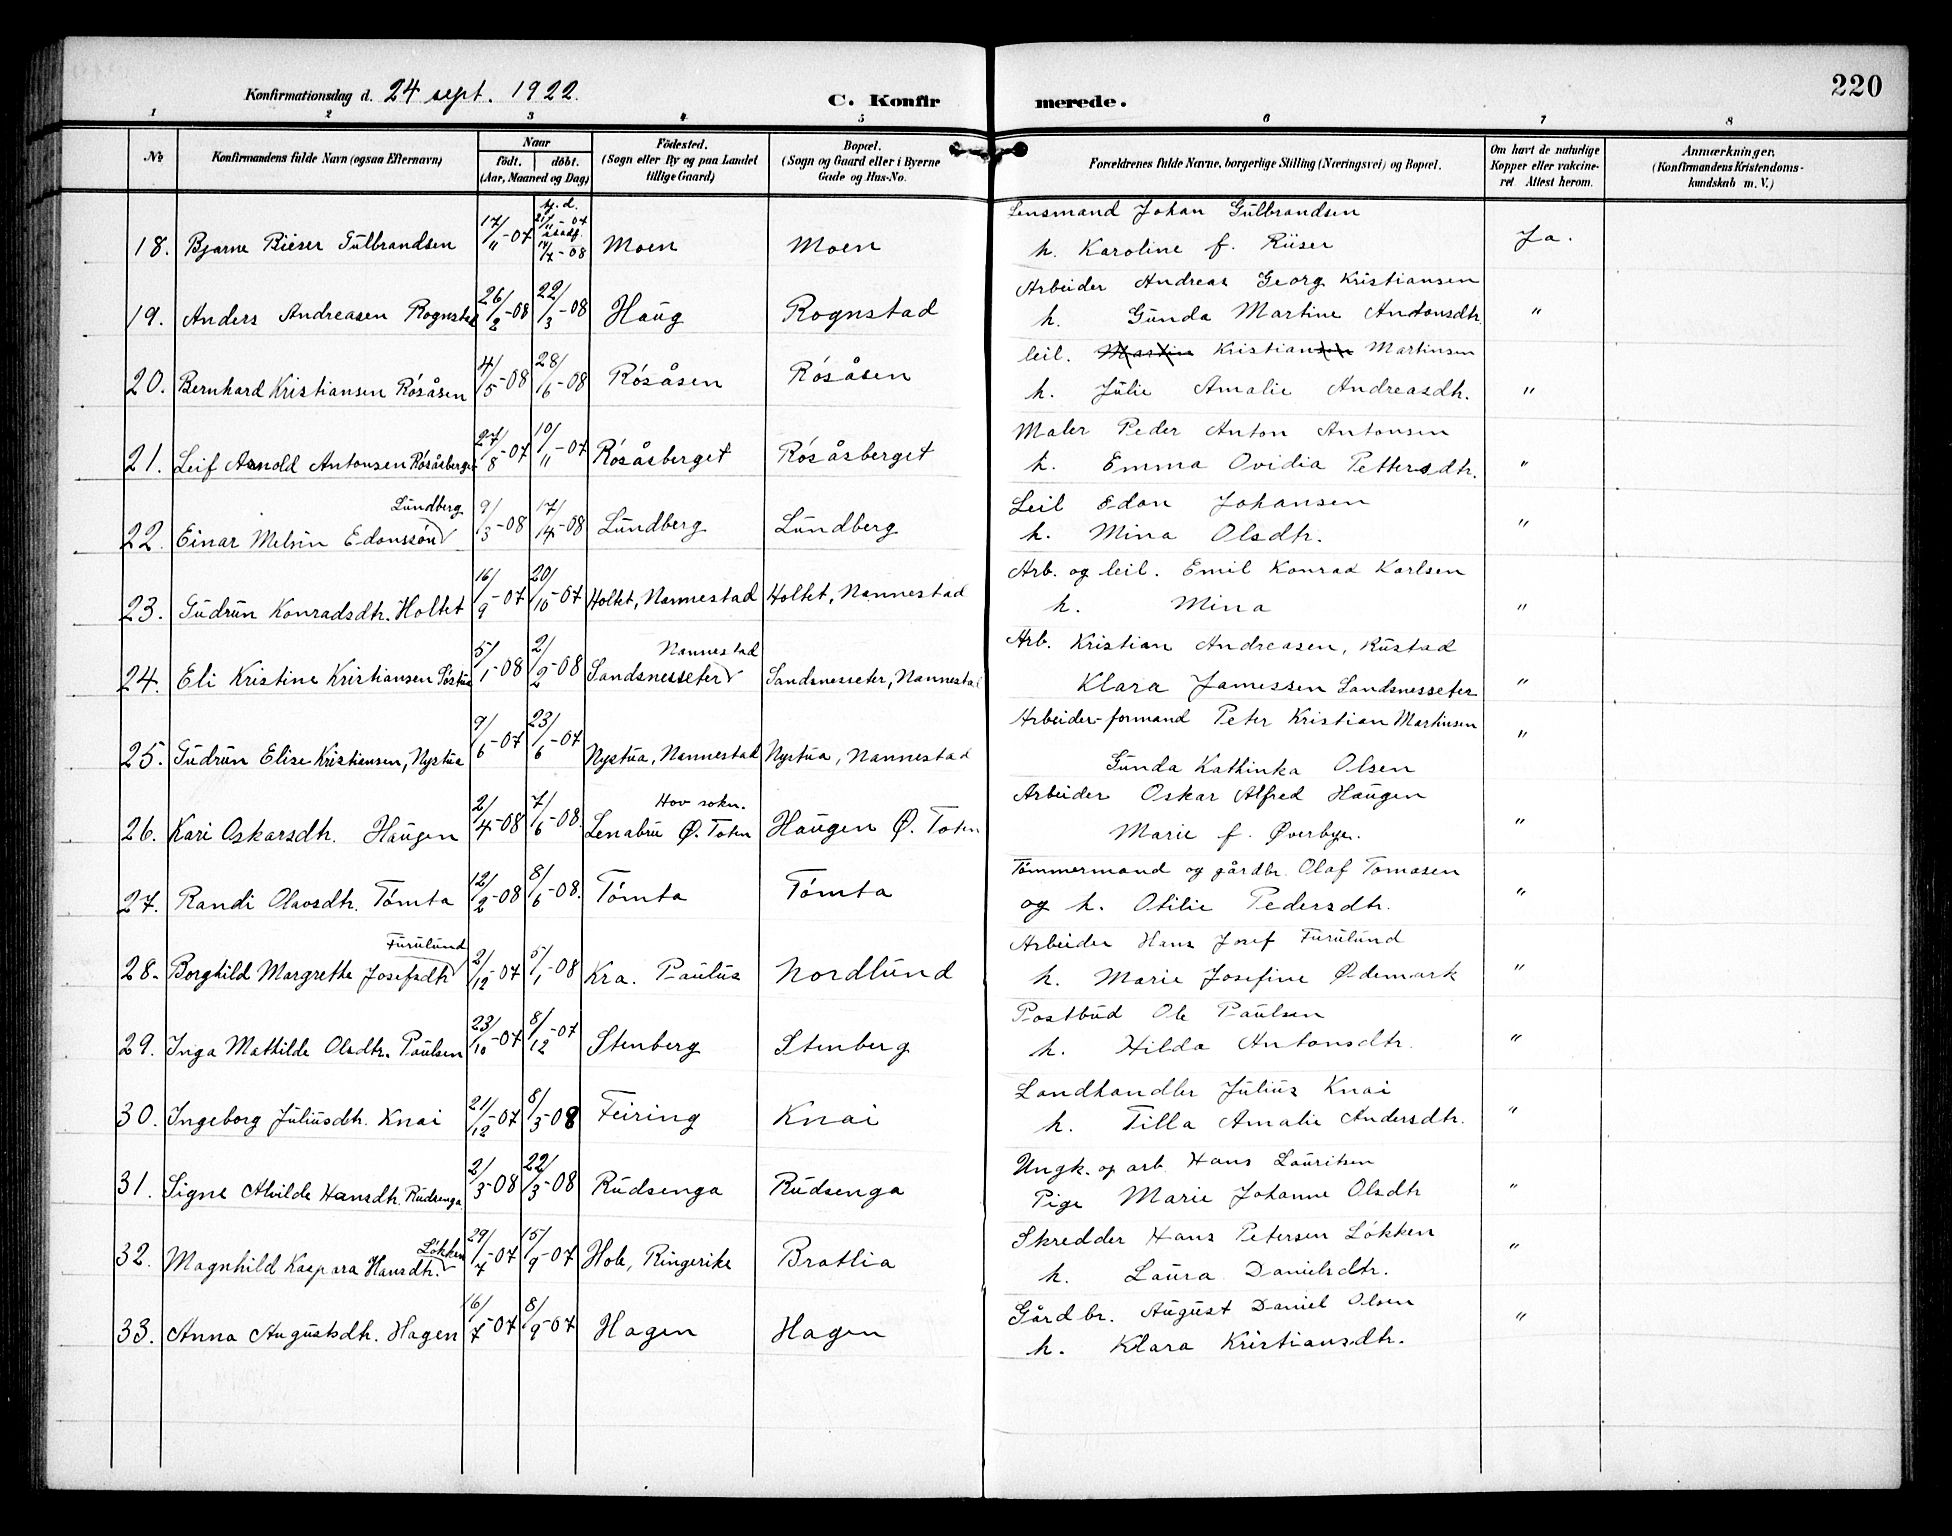 220
Konfirmationsdag d. 24 sept. 1922.
C. Konfirmerede.
1 2 3 4 5 6 7 8
No
Konfirmandens fulde Navn (ogsaa Efternavn)
Naar
født. døbt.
(Aar, Maaned og Dag)
Fødested.
(Sogn eller By og paa Landet
tillige Gaard)
Bopæl.
(Sogn og Gaard eller i Byerne
Gade og Hus-No.
Forældrenes fulde Navne, borgerlige Stilling (Næringsvei) og Bopæl.
Om havt de naturlige
Kopper eller vakcine-
ret Attest herom.
Anmærkninger.
(Konfirmandens Kristendoms-
kundskab m. V.)
hj. d. 21/11-07
stadf.
18. Bjarne Rieser Gulbrandsen 17/11-07 14/4-08 Moen Moen Lensmand Johan Gulbrandsen
h. Karoline f. Riiser Ja.
19. Anders Andreasen Rognstad 26/2-08 22/3-08 Haug Rognstad Arbeider Andreas Georg Kristiansen
h. Gunda Martine Antonsdtr. "
20. Bernhard Kristiansen Røsåsen 4/5-08 28/6-08 Røsåsen Røsåsen leil. Martin Kristiansen Martinsen
h. Julie Amalie Andreasdtr. "
21. Leif Arnold Antonsen Røsåsberget 27/8-07 10/11-07 Røsåsberget Røsåsberget Maler Peder Anton Antonsen
h. Emma Ovidia Pettersdtr. "
Lundberg
22. Einar Melvin Edonssøn 9/3-08 17/4-08 Lundberg Lundberg Leil Edon Johansen
h. Mina Olsdtr. "
23. Gudrun Konradsdtr. Holtet 16/9-07 20/10-07 Holtet, Nannestad Holtet, Nannestad Arb. og leil. Emil Konrad Karlsen
h. Mina "
Nannestad
24. Eli Kristine Kristiansen Søstua 5/1-08 2/2-08 Sandsnesseter Sandsnesseter, Nannestad Arb. Kristian Andreasen, Rustad
Klara Jamessen Sandsnesseter "
25. Gudrun Elise Kristiansen, Nystua 9/6-07 23/6-07 Nystua, Nannestad Nystua, Nannestad Arbeider-formand Peter Kristian Martinsen
Gunda Kathinka Olsen "
Hov sokn.
26. Kari Oskarsdtr. Haugen 2/4-08 7/6-08. Lenabru Ø. Toten Haugen Ø. Toten Arbeider Oskar Alfred Haugen
Marie f. Øverbye. "
27. Randi Olavsdtr. Tømta 12/2-08 8/6-08. Tømta Tømta Tømmermand og gårdbr. Olaf Tomasen
og h. Otilie Pedersdtr. "
Furulund
28. Borghild Margrethe Josefsdtr 2/12-07 5/1-08 Kra. Paulus Nordlund Arbeider Hans Josef Furulund
h. Marie Josefine Ødemark "
29. Inga Mathilde Olsdtr. Paulsen 23/10-07 8/12-07 Stenberg Stenberg Postbud Ole Paulsen
h. Hilda Antonsdtr. "
30. Ingeborg Juliusdtr. Knai 21/12-07 8/3-08 Feiring Knai Landhandler Julius Knai
h. Tilla Amalie Andersdtr. "
31. Signe Alvilde Hansdtr. Rudsenga 2/3-08 22/3-08 Rudsenga Rudsenga Ungk. og arb. Hans Lauritsen
Pige Marie Johanne Olsdtr "
Løkken
32. Magnhild Kaspara Hansdtr. 29/7-07 15/9-07 Hole, Ringerike Bratlia Skredder Hans Petersen Løkken
h. Laura Danielsdtr. "
33. Anna Augustsdtr. Hagen 16/7-07 8/9-07 Hagen Hagen Gårdbr. August Daniel Olsen
h. Klara Kristiansdtr. "